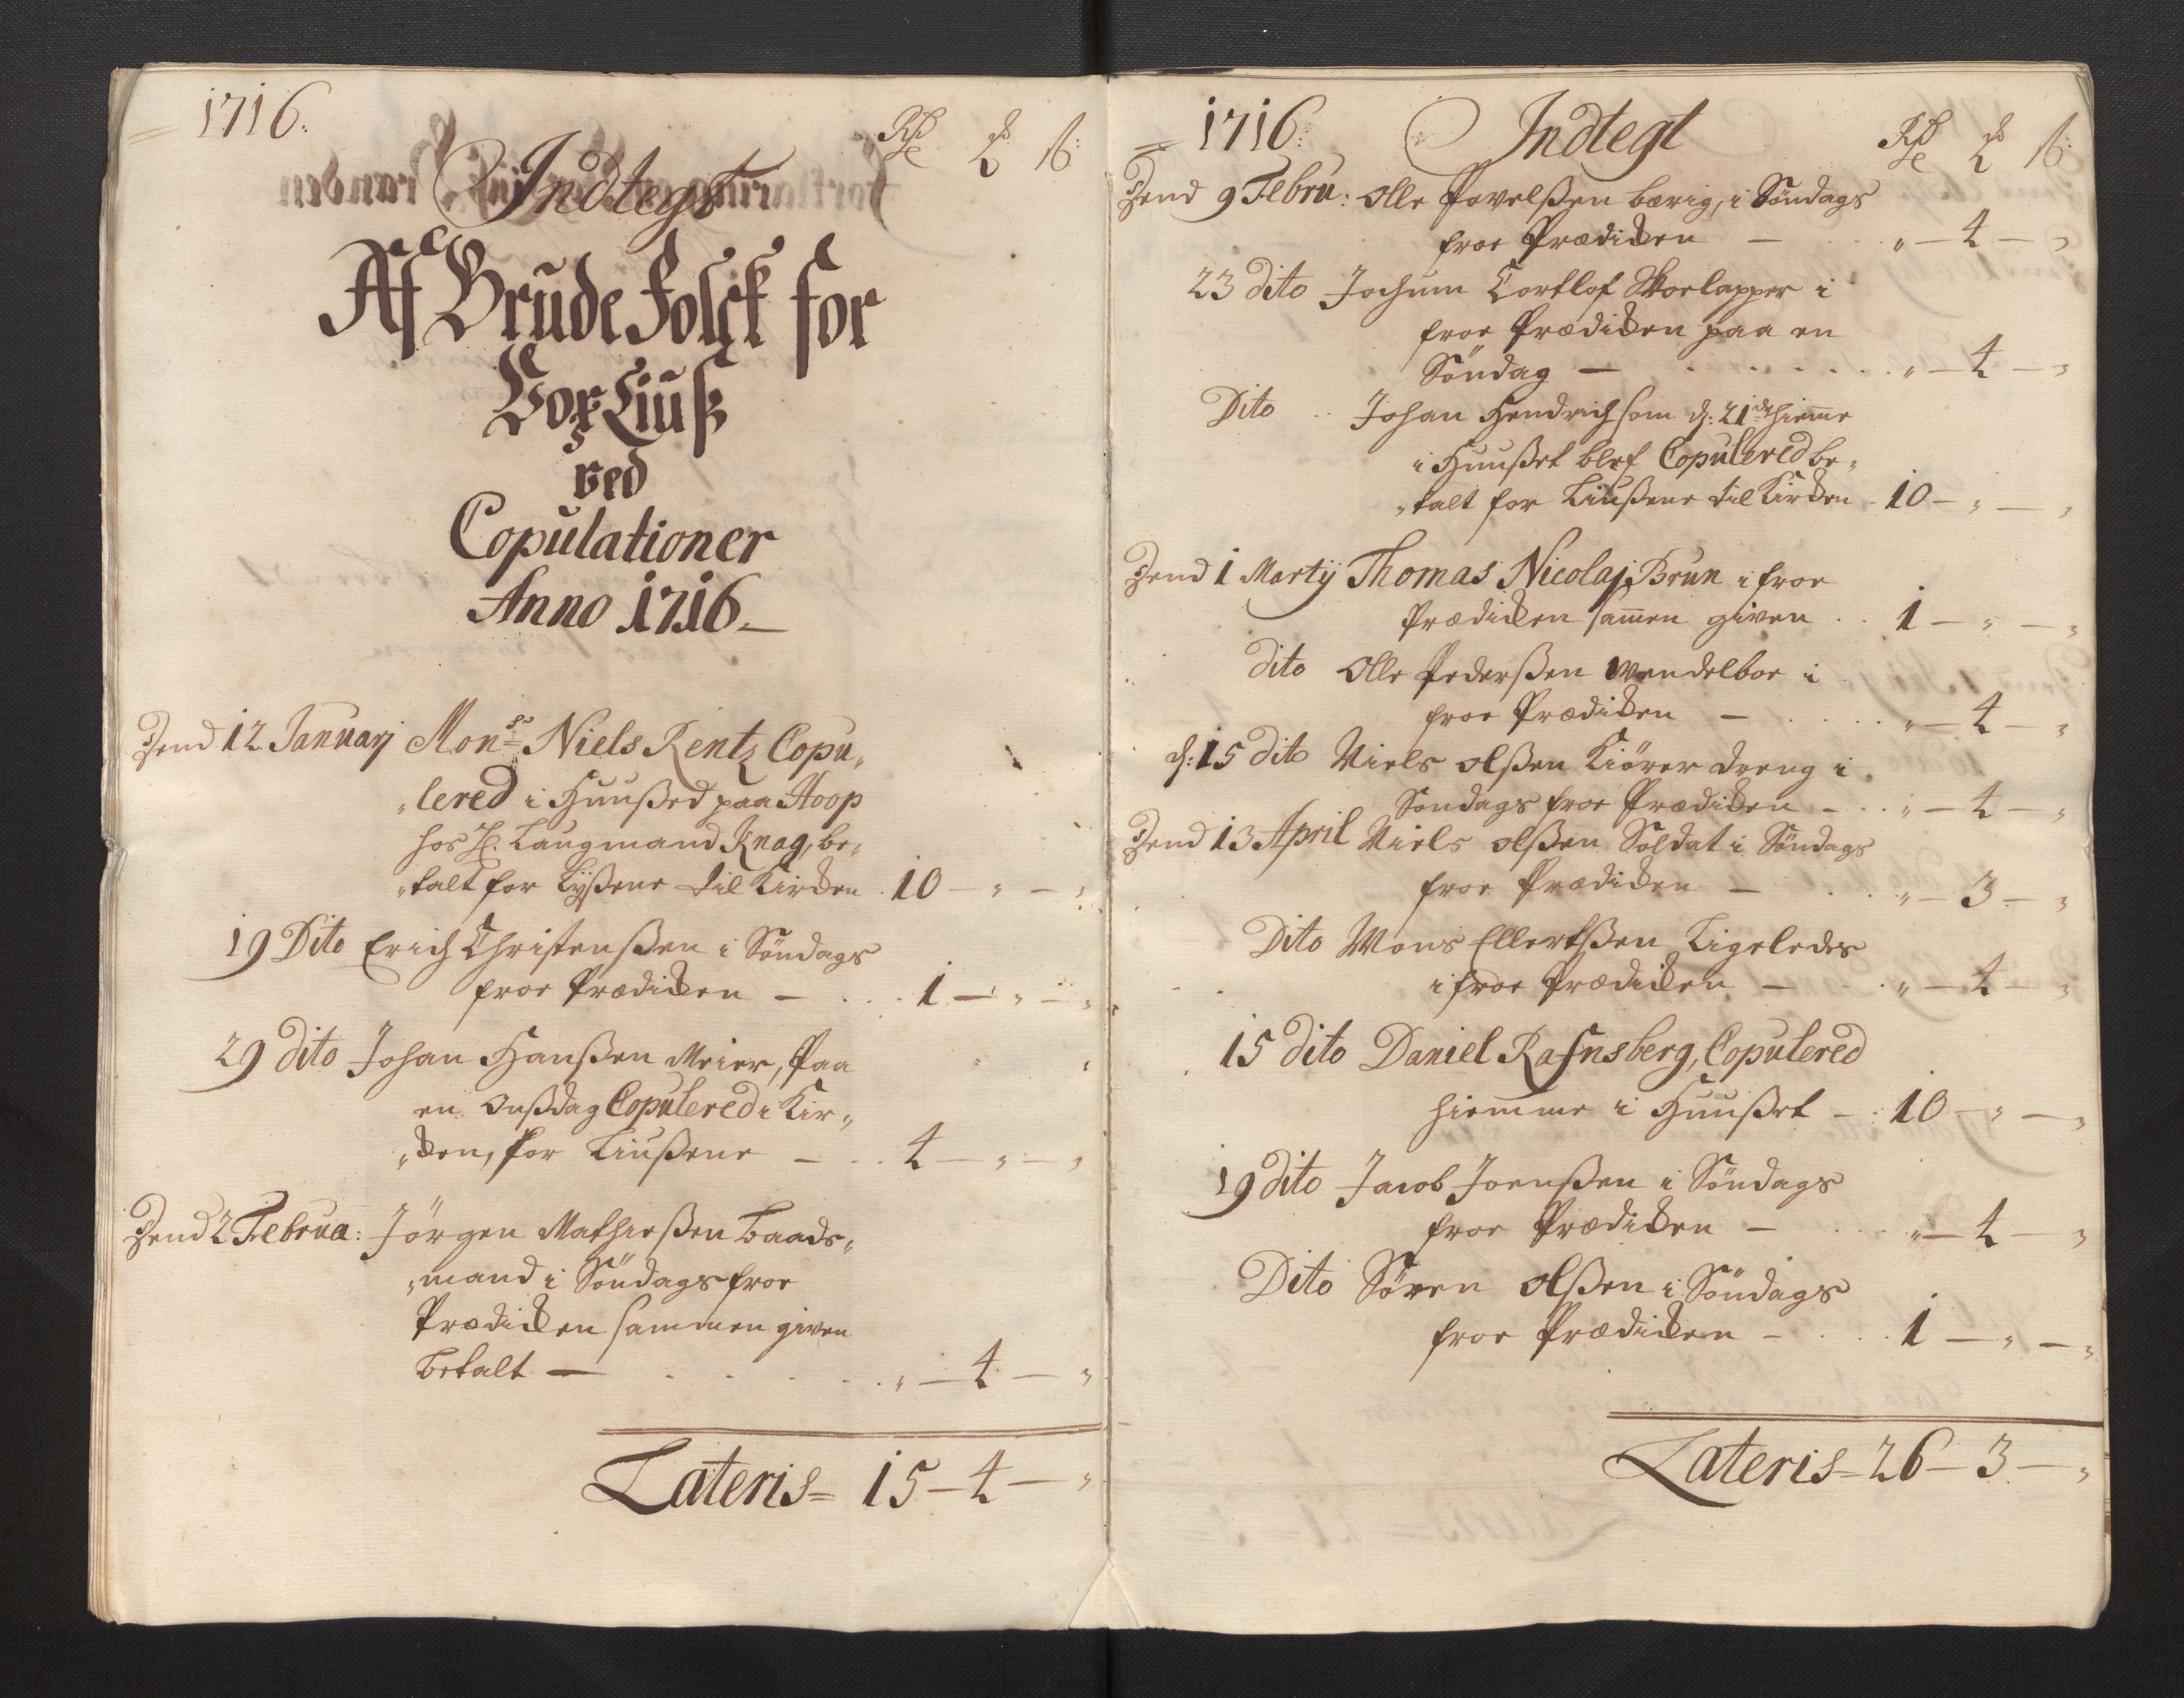 1716:
Rd
Indtegt
Af Brude Folck for
Vox Liuß
ved
Copulationer
Anno 1716
Dend 12 Januarj Monsr Niels Rentz Copu„
„lered i Huußed paa Hoop
hos H. Laugmand Knag, be„
„talt for Lyßene til Kircken . 10 — „ — „
19 Dito Erich Christenßen i Söndags
froe Prædicken — . . . 1 — „ — „
29 dito Johan Hanßen Meier, Paa
en Onßdag Copulered i Kir„
„cken, for Liußene — . . 4 — „ — „
Dend 2 Februa: Jörgen Mathießen Baads„
„mand i Söndags froe
Prædicken sammen given
betalt — . . . . . „ — 4 — „
Lateris = 15 — 4 — „
1716: Indtegt Rd
Dend 9 Febru: Olle Povelßen bærig, i Söndags
froe Prædicken — . . . „ — 4 — „
23 dito Jochum Cortlof Skoelapper i
froe Prædicken paa en
Söndag — . . . . . „ — 4 — „
Dito .. Johan Hendrich som d: 21de hieme
i Huußet blef Copulered be„
„talt for Liußene til Kircken . 10 — „ — „
Dend 1 Martij Thomas Nicolaj Brun i froe
Prædicken samen given . . 1 — „ — „
dito Olle Pederßen Wendelboe i
froe Prædicken — . . . . „ — 4 — „
d: 15 dito Niels Olßen Kiörer dreng i
Söndags froe Prædicken — . . „ — 4 — „
Dend 13 April Niels Olßen Soldat i Söndags
froe Prædicken — . . . „ — 3 — „
Dito Mons Ellertßen Ligeledes
i froe Prædicken — . . „ — 4 — „
15 dito Daniel Rafnsberg, Copulered
hiemme i Huußet — : 10 — „ — „
19 dito Jacob Joenßen i Söndags
froe Prædicken — . . . „ — 4 — „
Dito Sören Olßen i Söndags
froe Prædicken — . . . 1 — „ — „
Lateris = 26 — 3 — „